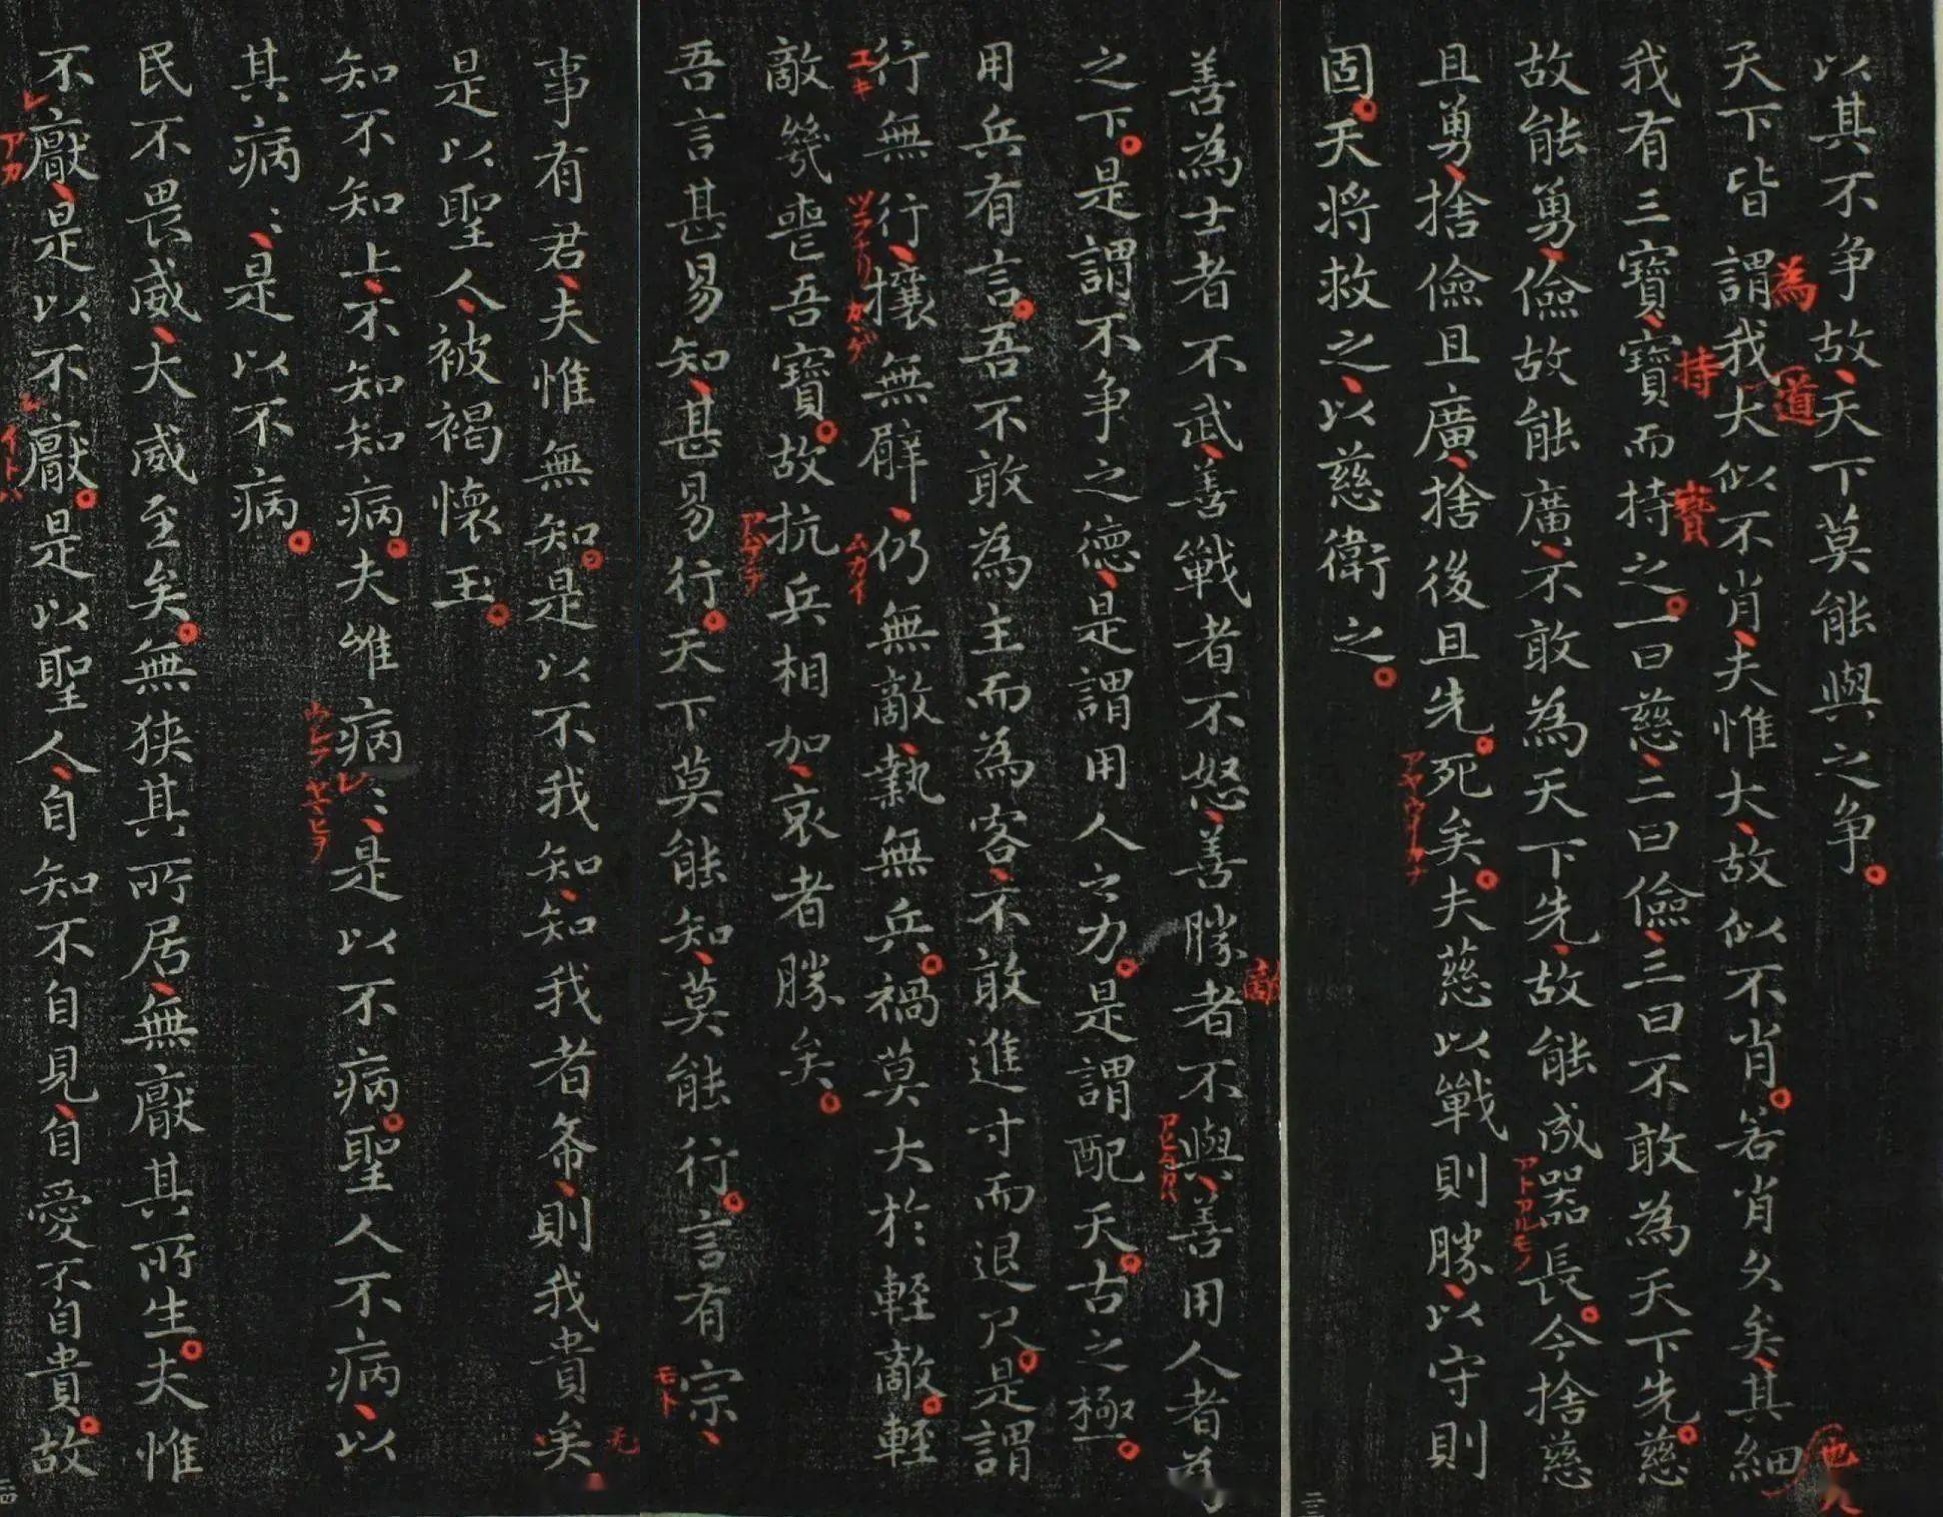 以其不争故、天下莫能與之争。
為
道
天下皆謂我大似不肖、夫惟大、故似不肖。若肖久矣、其細
也夫
持
寶
我有三寶、寶而持之。一曰慈、二曰儉、三曰不敢為天下先。慈
故能勇、儉故能廣、不敢為天下先、故能成器長。今捨慈
アトアルモノ
且勇、捨儉且廣、捨後且先。死矣。夫慈以戦則勝、以守則
固。天将救之、以慈衛之。
二三
敵
善為士者不武、善戦者不怒、善勝者不與、善用人者為
之下。是謂不争之德、是謂用人之力。是謂配天。古之極。
用兵有言。吾不敢為主而為客、不敢進寸而退尺。是謂
行無行、攘無臂、仍無敵、執無兵。禍莫大於輕敵。輕
ユキ
ツラナリ
カヽゲ
ムカイ
敵幾喪吾寶。故抗兵相加、哀者勝矣。
吾言甚易知、甚易行。天下莫能知、莫能行。言有宗、
モト
事有君、夫惟無知。是以不我知、知我者希、則我貴矣
是以聖人、被褐懷玉。
知不知上、不知知病。夫唯病〻、是以不病。聖人不病、以
其病〻、是以不病。
民不畏威、大威至矣。無狭其所居、無厭其所生。夫惟
不厭、是以不厭。是以聖人、自知不自見、自愛不自貴。故
アカ
イトハ
二四